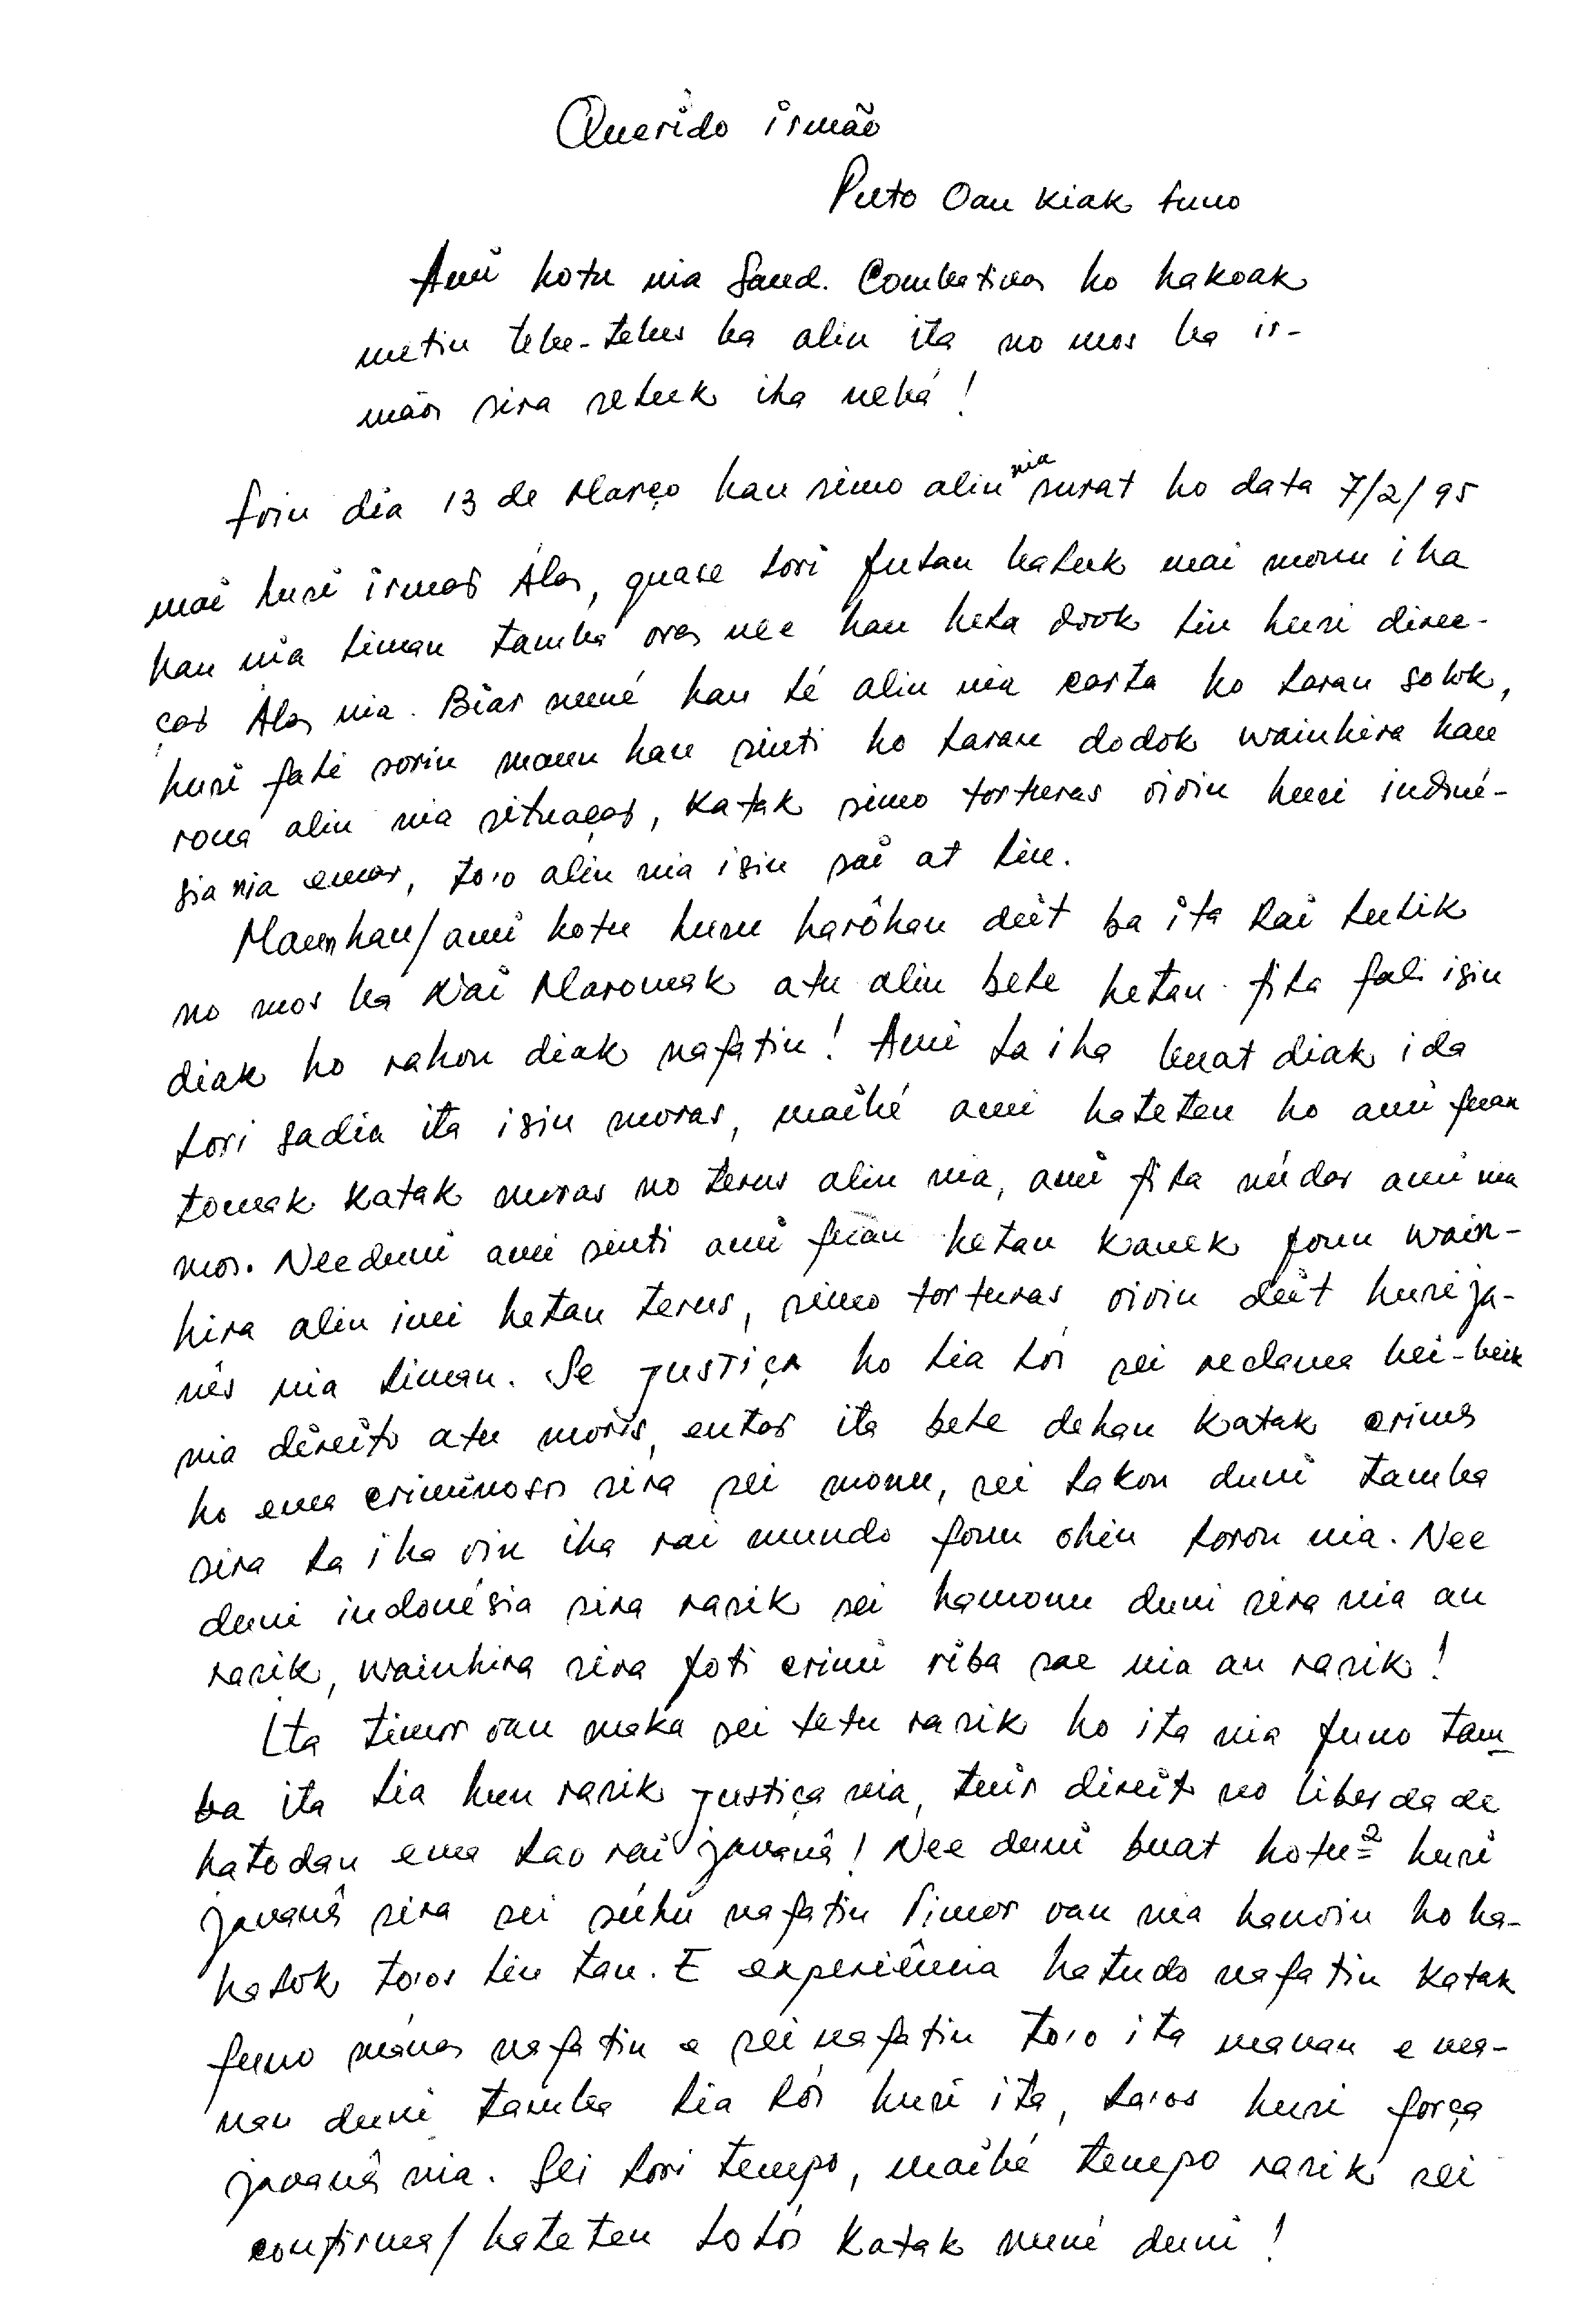 Querido irmão
Puto Oan Kiak funo
Ami hotu nia Saud. Combativas ho hakoak
metin tebe-tebes ba alin ita no mos ba ir-
mãos sira seluk iha nebá!
foin dia 13 de Março hau simo alin nia surat ho data 7/2/95
mai husi irmas Alas, quase lori fulan baluk mai monu iha
hau nia liman tamba oras nee hau hela dook liu husi direc-
ças Alas nia. Bias nuné hau lé alin nia carta ho laran solok,
husi fali sorin monu hau sinti ho laran dodok wainhira hau
rona alin nia situaças, katak simo torturas oioin husi indoné-
sia nia emas, to'o alin nia isin sai at liu.
Maun hau/ami hotu husu harôhan deit ba ita Rai lulik
no mos ba Nai Maromak atu alin bele hetan fila fali isin
diak ho rahon diak nafatin! Ami la iha buat diak ida
lori sadia ita isin moras, maibé ami hateten ho ami fuan
tomak katak moras no terus alin nia, ami fila nudar ami nia
mos. Needuni ami sinti ami fuan hetan kanek foun wain-
hira alin imi hetan terus, simo torturas oioin deit husi ja-
nês nia liman. Se justiça ho lia lós sei reclama bei-beik
nia direito atu moris, entas ita bele dehan katak crimes
ho ema criminosos sira sei monu, sei lakon duni tamba
sira la iha oin iha rai mundo foun ohin loron nia. Nee
duni indonésia sira rasik sei hamonu duni sira nia an
rasik, wainhira sira foti crimi riba sae nia an rasik!
Ita timor oan maka sei tetu rasik ho ita nia funo tam
ba ita lia hun rasik justiça nia, tuir direito no liberdade
hatodan ema lao rai javanês! Nee duni buat hotu2 husi
javanês sira sei súhu nafatin Timor oan nia hanoin ho ha-
halok to'os liu tan. E experiência hatudo nafatin katak
funo mánas nafatin e sei nafatin to'o ita manan e ma-
nan duni tamba lia lós husi ita, la'os husi força
javanês nia. Sei lori tempo, maibé tempo rasik sei
confirma/ hateten lolós katak nuné duni!